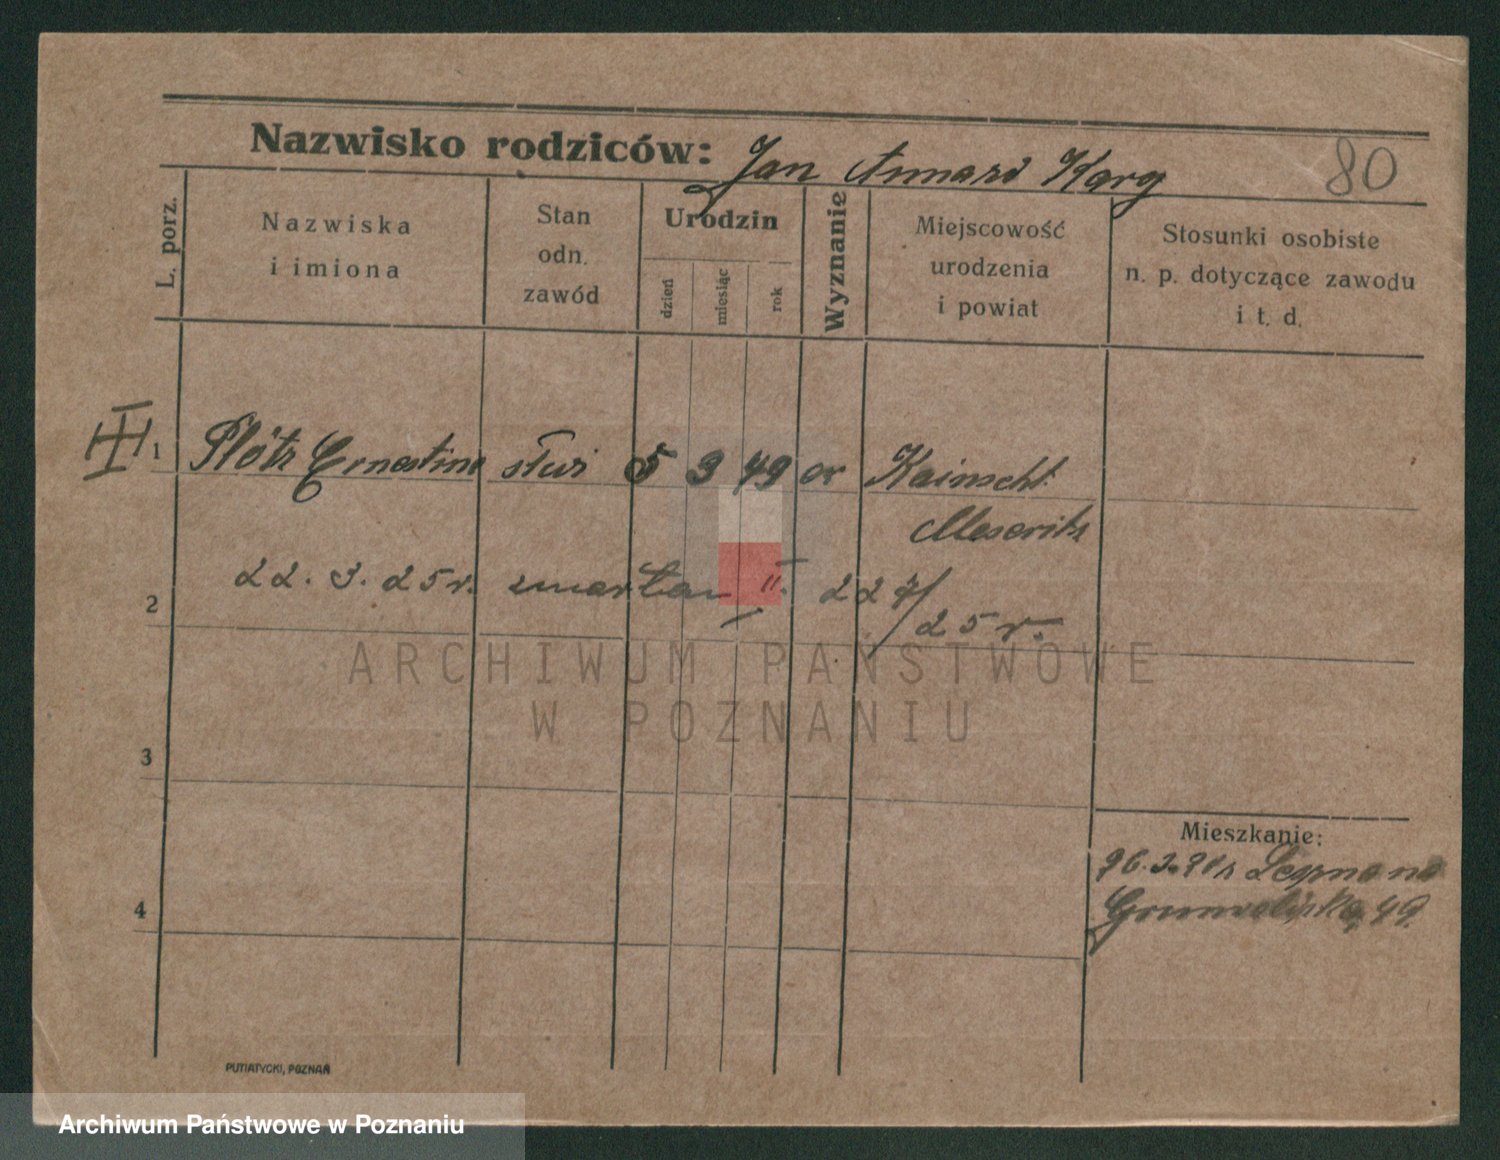 Nazwisko rodziców: Jan Karg 80
L. porz.
Nazwiska
i imiona
Stan
odn.
zawód
Urodzin
dzień
miesiąc
rok
Wyznanie
Miejscowość
urodzenia
i powiat
Stosunki osobiste
n. p. dotyczące zawodu
i t. d.
III 1 Plötz Ernestine 5 3 49 Kainscht
Meseritz
2 22. 3. 25 r. zmarła II. 227/
25 r.
ARCHIWUM PAŃSTWOWE
W POZNANIU
3
Mieszkanie:
4 49
PUTIATYCKI, POZNAŃ
Archiwum Państwowe w Poznaniu